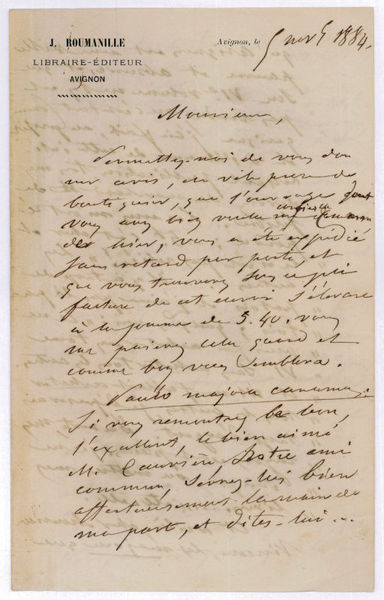 J. ROUMANILLE
LIBRAIRE-ÉDITEUR
AVIGNON
Avignon, le 5 1884.
Monsieur,
Permettez-moi de vous don
ner avis, en vile prose de
boutiquier, que l'ouvrage dont
vous avez bien voulu me
der hier, vous a été expédié
sans retard par poste, et
que vous trouverez sous ce pli
facture de cet envoi s'élevant
à la somme de 5.40. vous
me paierez cela quand et
comme bon vous semblera.
Paulo majora canamus.
Si vous rencontrez le bon,
l'excellent, le bien aimé
M. notre ami
commun, serrez-lui bien
affectueusement la main de
ma part, et dites-lui ...